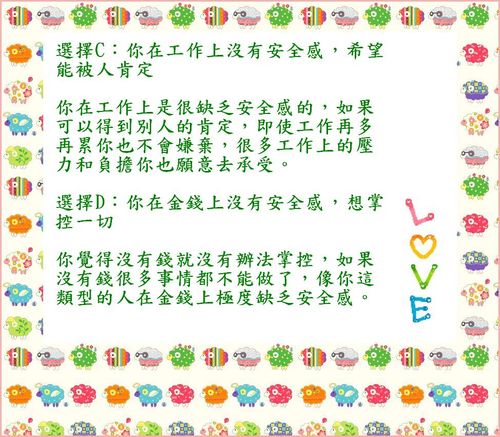 選擇C：你在工作上沒有安全感，希望
能被人肯定
你在工作上是很缺乏安全感的，如果
可以得到別人的肯定，即使工作再多
再累你也不會嫌棄，很多工作上的壓
力和負擔你也願意去承受。
選擇D：你在金錢上沒有安全感，想掌
控一切
你覺得沒有錢就沒有辦法掌控，如果
沒有錢很多事情都不能做了，像你這
類型的人在金錢上極度缺乏安全感。
LOVE